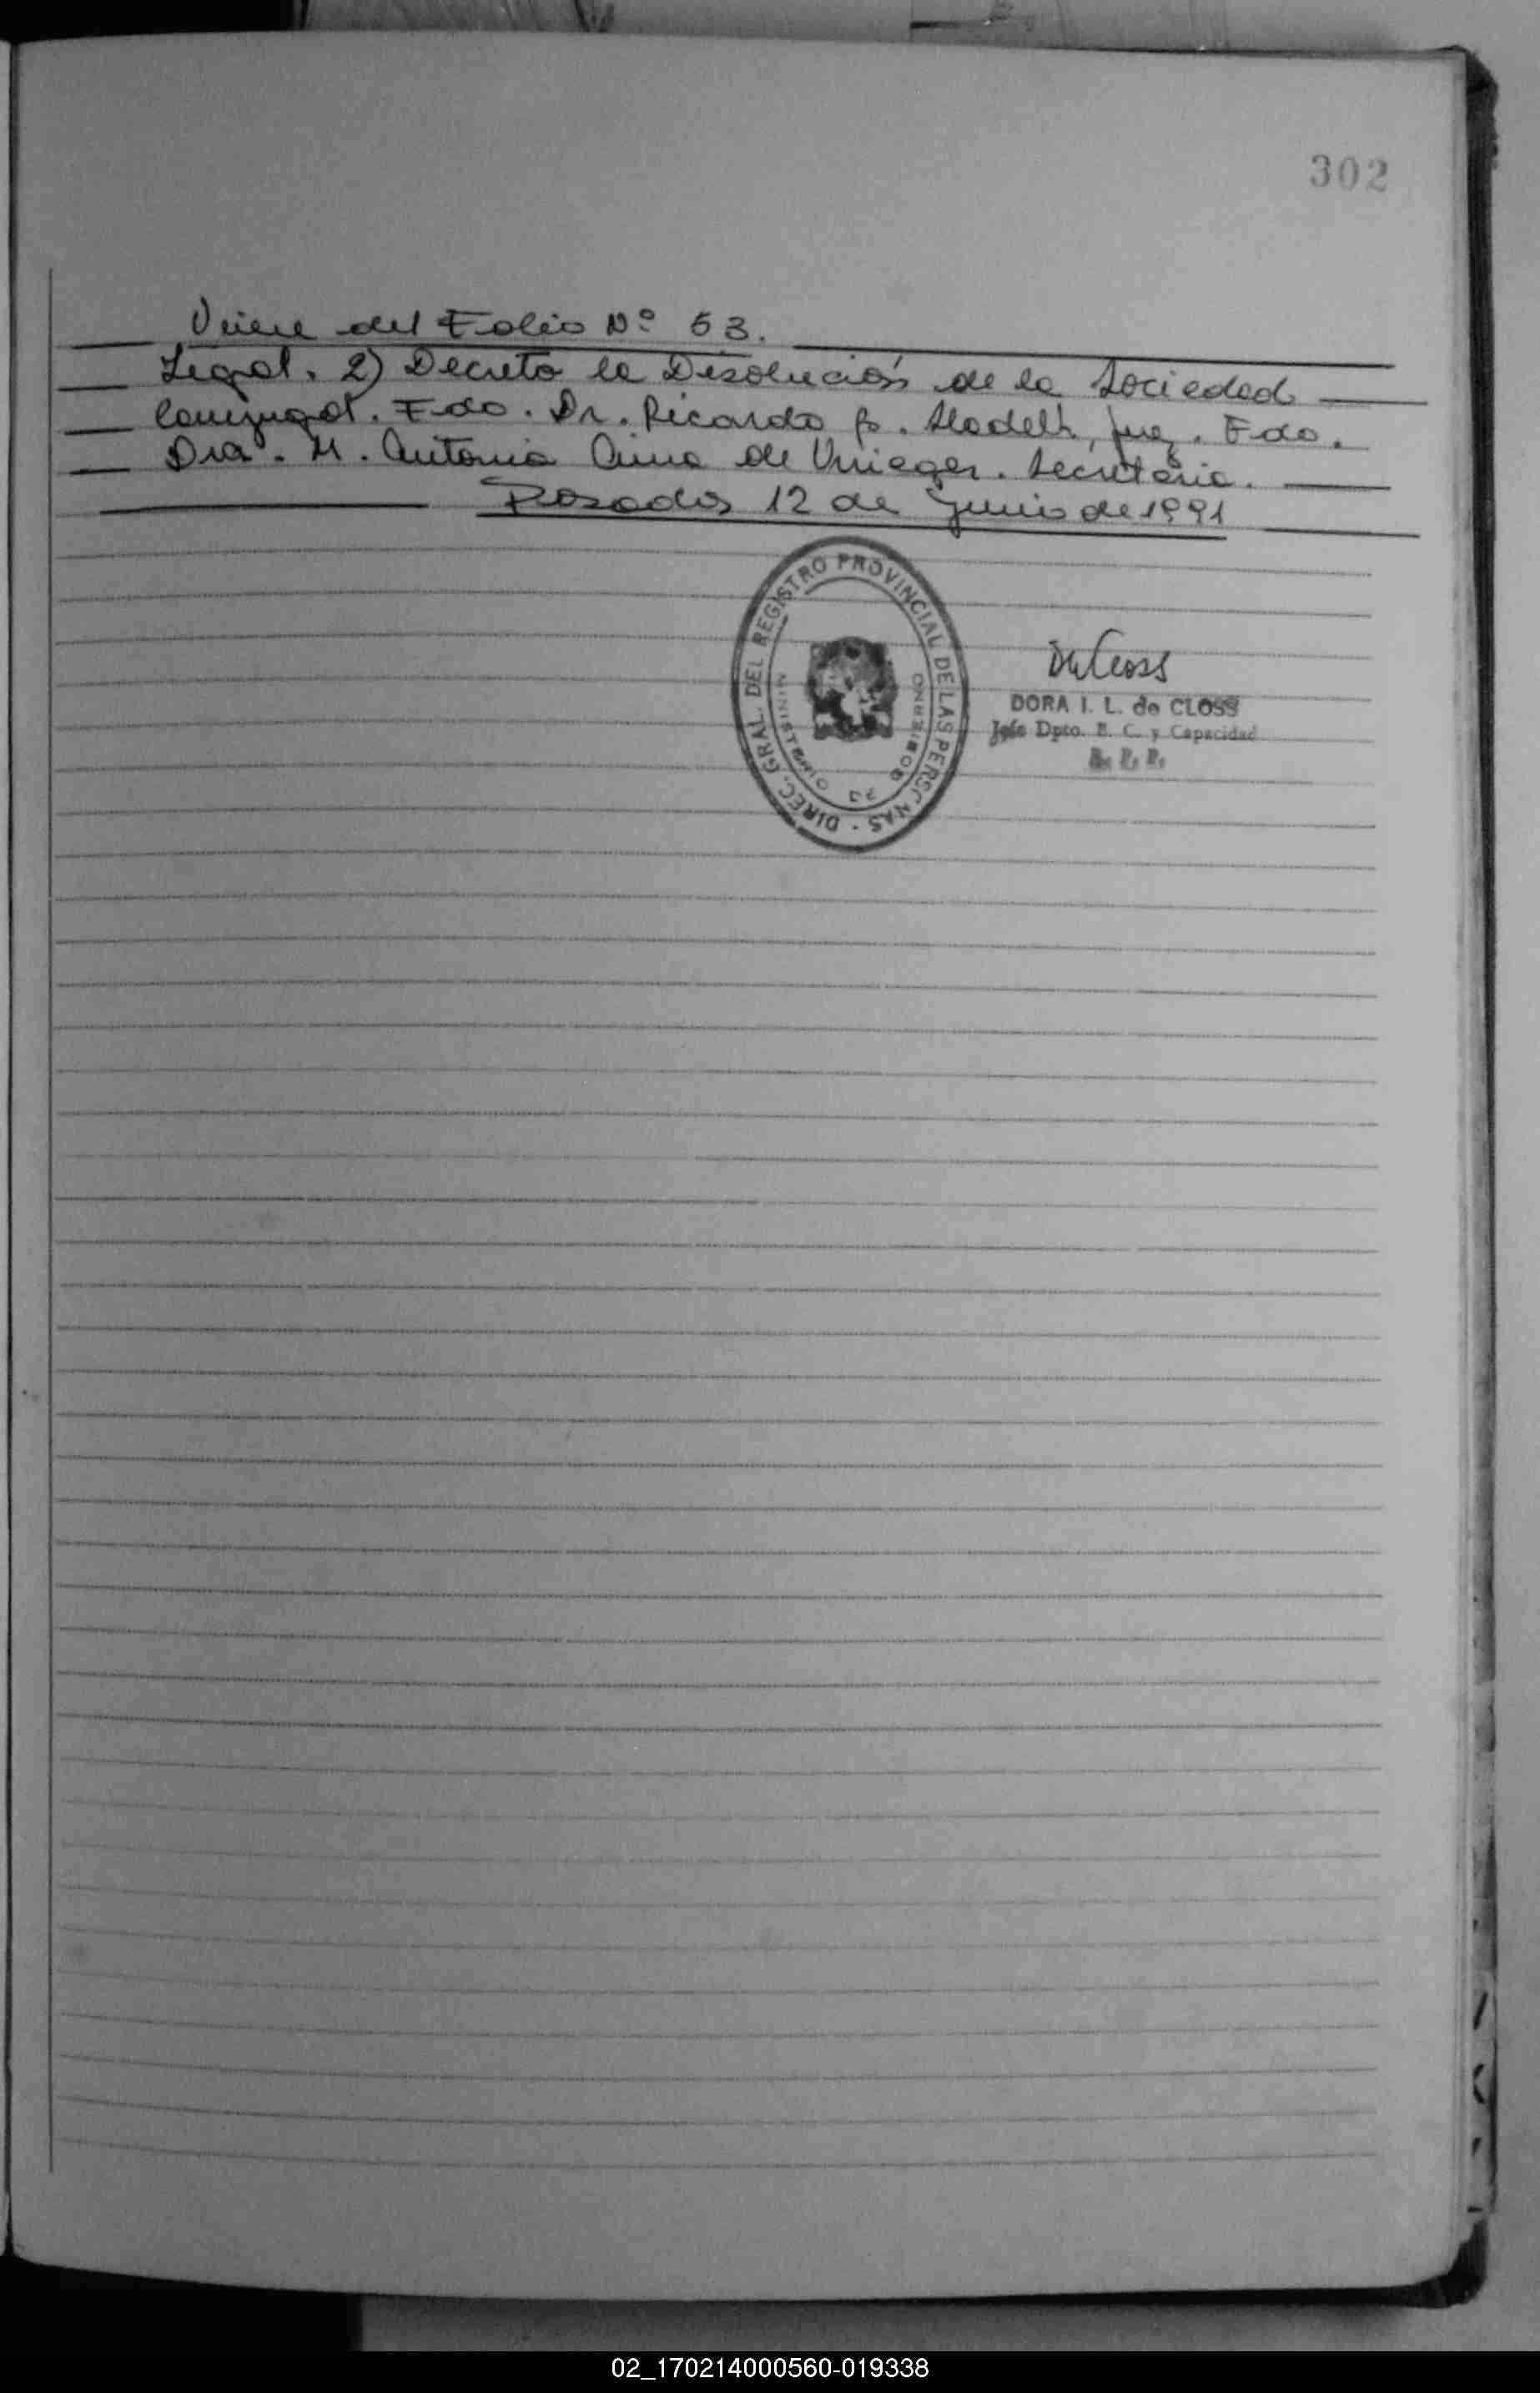 302
Viene del Folio Nº 53.
Legal. 2) Decreto la Disolución de la Sociedad
Conyugal. Fdo. Dr. Ricardo Juez. Fdo.
Dra. M. Antonia de Secretaria.
Posadas 12 de Junio de 1991
DIREC. GRAL. DEL REGISTRO PROVINCIAL DE LAS PERSONAS -
MINISTERIO DE GOBIERNO
DORA I. L. de CLOSS
Jefe Dpto. E. C. y Capacidad
02_170214000560-019338